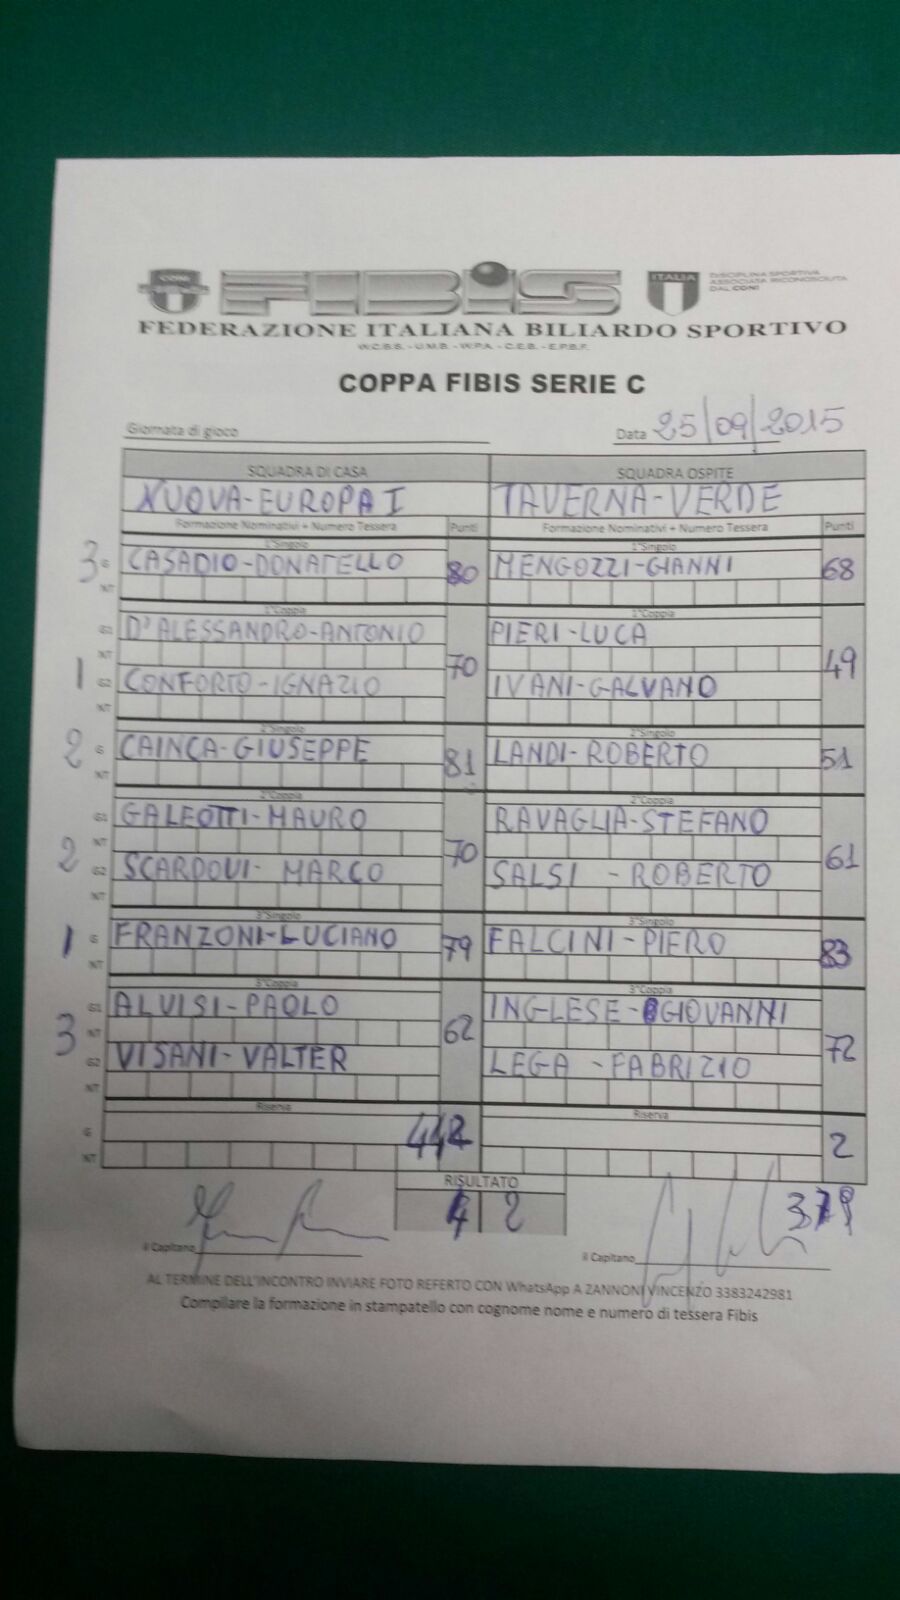 CONI FIBIS ITALIA DISCIPLINA SPORTIVA
ASSOCIATA RICONOSCIUTA
DAL CONI
FEDERAZIONE ITALIANA BILIARDO SPORTIVO
W.C.B.S. - U.M.B. - W.P.A. - C.E.B. - E.P.B.F.
COPPA FIBIS SERIE C
Giornata di gioco Data 25/09/2015
SQUADRA DI CASA SQUADRA OSPITE
NUOVA-EUROPA I TAVERNA-VERDE
Formazione Nominativi + Numero Tessera Punti Formazione Nominativi + Numero Tessera Punti
1°Singolo 1°Singolo
3 G CASADIO-DONATELLO 80 MENGOZZI-GIANNI 68
NT
1°Coppia 1°Coppia
G1 D'ALESSANDRO-ANTONIO PIERI-LUCA
NT 70 49
1 G2 CONFORTO-IGNAZIO IVANI-GALVANO
NT
2°Singolo 2°Singolo
2 G CAINCA-GIUSEPPE 81 LANDI-ROBERTO 51
NT
2°Coppia 2°Coppia
G1 GALEOTTI-MAURO RAVAGLIA-STEFANO
NT 70 61
2 G2 SCARDOVI-MARCO SALSI-ROBERTO
NT
3°Singolo 3°Singolo
1 G FRANZONI-LUCIANO 79 FALCINI-PIERO 83
NT
3°Coppia 3°Coppia
G1 ALVISI-PAOLO INGLESE-GIOVANNI
3 NT 62 72
G2 VISANI-VALTER LEGA-FABRIZIO
NT
Riserva Riserva
G 442 2
NT
RISULTATO
4 2 379
Il Capitano Il Capitano
AL TERMINE DELL'INCONTRO INVIARE FOTO REFERTO CON WhatsApp A ZANNONI VINCENZO 3383242981
Compilare la formazione in stampatello con cognome nome e numero di tessera Fibis